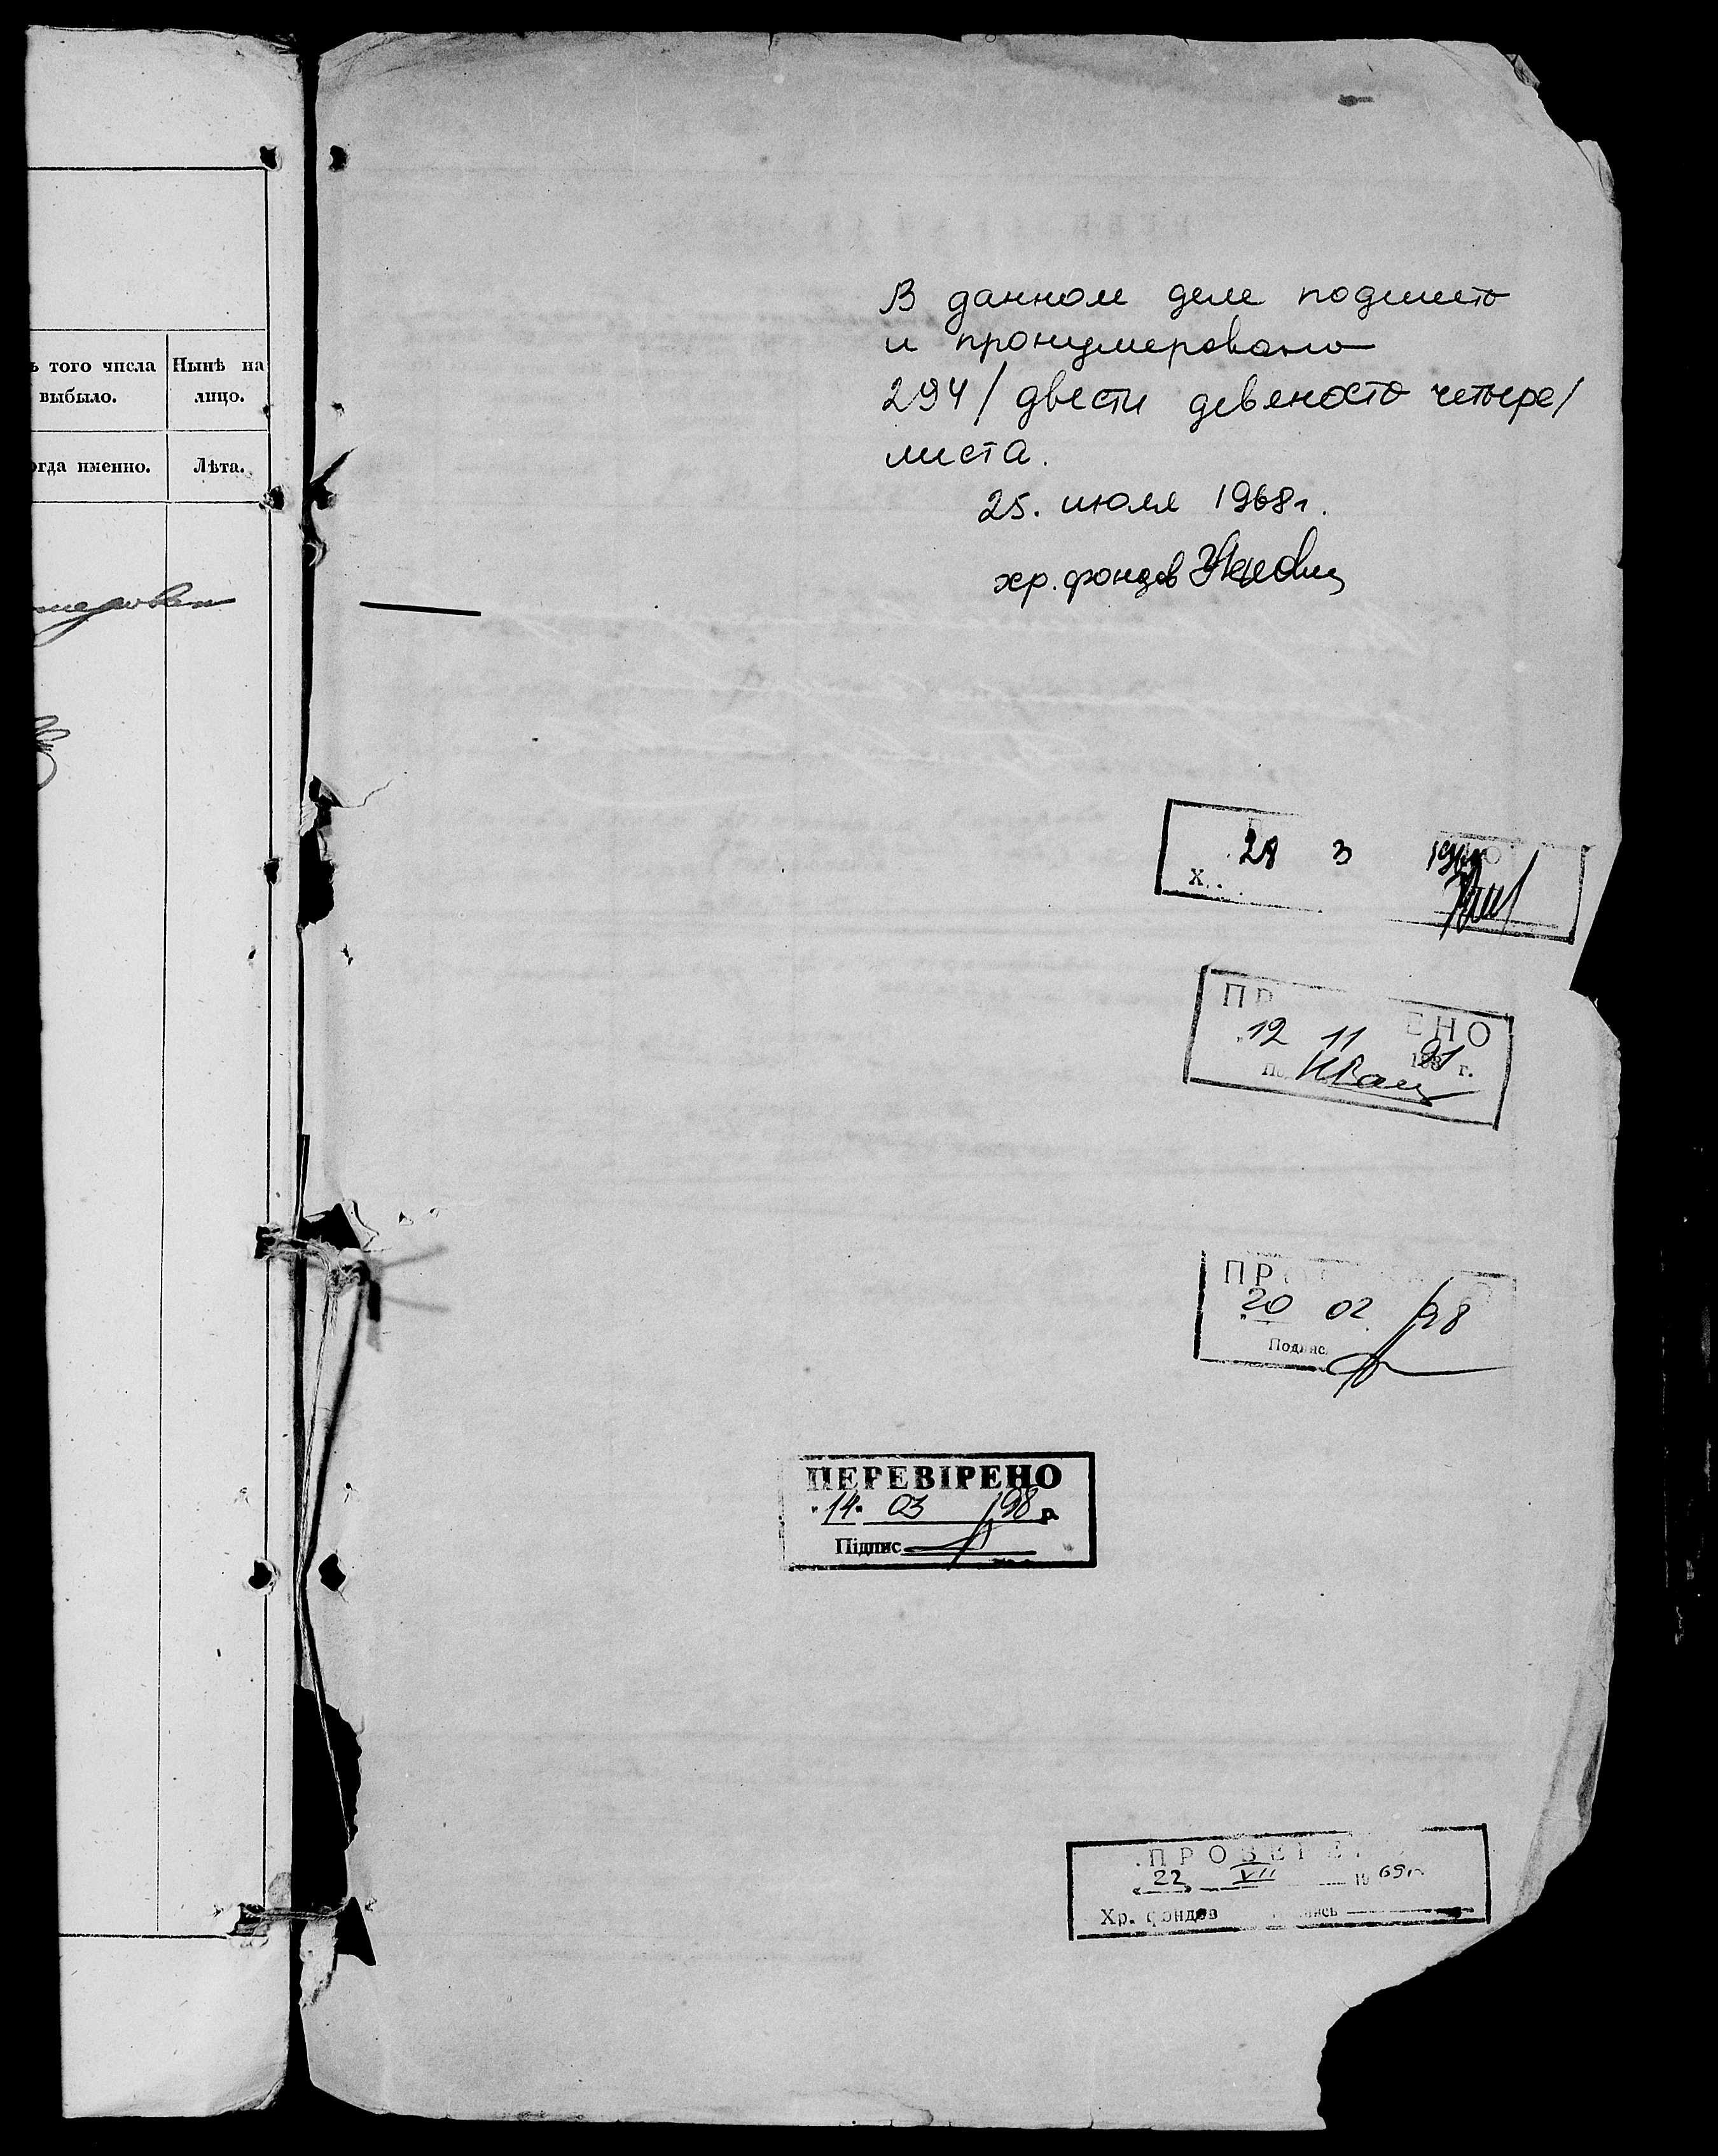 того числа
выбыло.
Нынѣ на
лицо.
именно.
Лѣта.
В данном деле подшито
и пронумеровано
294/двести девяносто четыре/
листа.
25. июля 1968г.
хр. фондов
28 3
Х.
12 11 г.
20 02 98
Подпис
ПЕРЕВІРЕНО
"14" 03 1998 р.
Підпис
ПРОВЕРЕНО
"22" VII 1969г.
Хр. фондов подпись